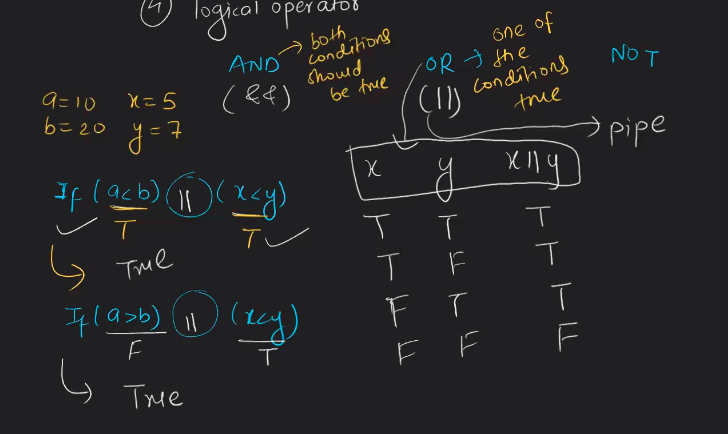 ④ logical operator
AND → both conditions should be true
(&&)
OR → one of the conditions true
(||) → pipe
NOT
a=10 x=5
b=20 y=7
If (a<b) || (x<y)
T T
True
If (a>b) || (x<y)
F T
True
x y x||y
T T T
T F T
F T T
F F F